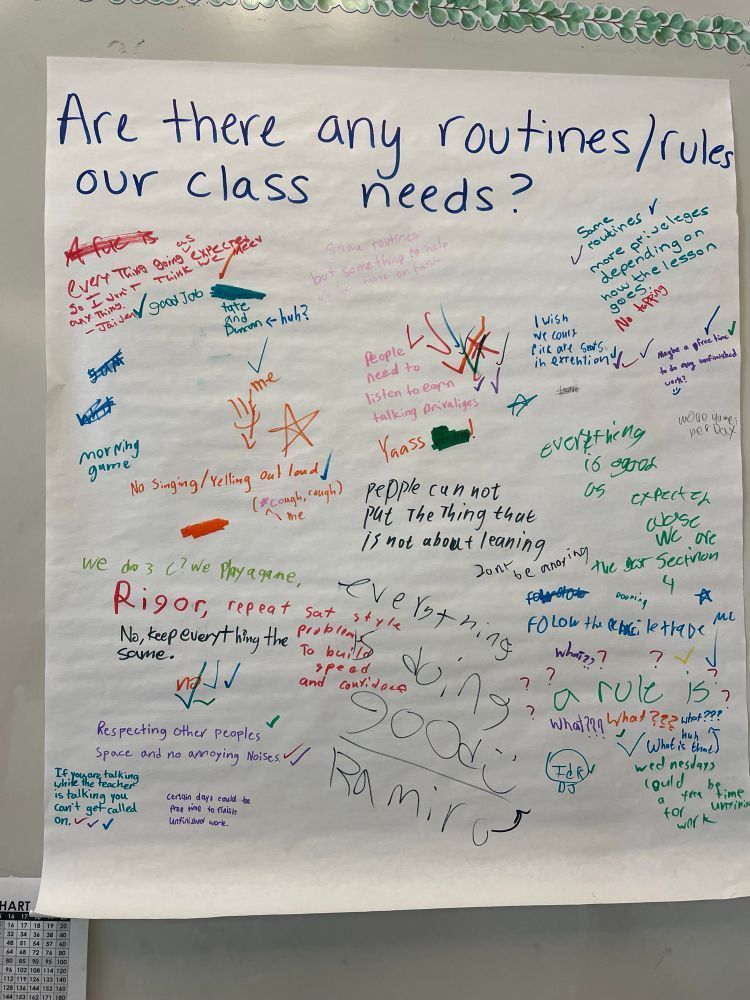 Are there any routines/rules
our class needs?
A rule is
everything going as expected
So I don't think we need
anything.
- Jaiden
good Job
tate
and
Duncan ← huh?
me
morning
game
No Singing/Yelling out loud
(*cough, cough)
me
we do 3 C? We play a game,
Rigor, repeat sat style
problems
to build
speed
and confidence
No, keep everything the
same.
no
Respecting other peoples
space and no annoying Noises.
If you are talking
while the teacher
is talking you
can't get called
on.
certain days could be
free time to finish
unfinished work.
Same routines
but something to help
be more on task
People
need to
listen to earn
talking privaliges
Yaass !
people can not
put the thing that
is not about leaning
Dont be annoying
everything
doing
good
Ramiro
Same
routines
more priveleges
depending on
how the lesson
goes.
No tapping
I wish
we could
Pick are seats
in extention
Maybe a free time
to do any unfinished
work?
more games
per Day
everything
is good
as
we are
the
4
FOLOW the
ME
what??
? ?
a rule is
? ? ? ? ?
What??? What??? what???
huh
(What is that)
DJ
wednesdays
could be
a free time
for unfinish
work
HART
16 17 18 19 20
16 17 18 19 20
32 34 36 38 40
48 51 54 57 60
64 68 72 76 80
80 85 90 95 100
96 102 108 114 120
112 119 126 133 140
128 136 144 152 160
144 153 162 171 180